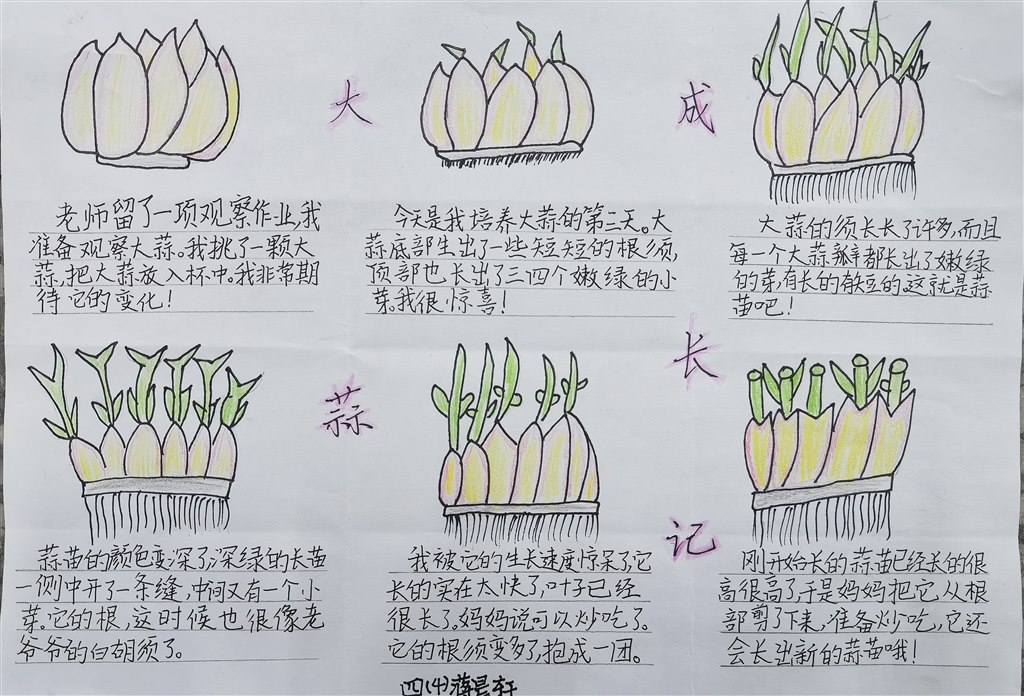 大
蒜
成
长
记
老师留了一项观察作业,我
准备观察大蒜。我挑了一颗大
蒜,把大蒜放入杯中。我非常期
待它的变化!
今天是我培养大蒜的第三天。大
蒜底部生出了一些短短的根须,
顶部也长出了三四个嫩绿的小
芽。我很惊喜!
大蒜的须长长了许多,而且
每一个大蒜瓣都长出了嫩绿
的芽,有长的有短的,这就是蒜
苗吧!
蒜苗的颜色变深了,深绿的长苗
一侧中开了一条缝,中间又有一个小
芽。它的根,这时候也很像老
爷爷的白胡须了。
我被它的生长速度惊呆了,它
长的实在太快了,叶子已经
很长了。妈妈说可以炒吃了。
它的根须变多了,抱成一团。
刚开始长的蒜苗已经长的很
高很高了,于是妈妈把它从根
部剪了下来,准备炒吃,它还
会长出新的蒜苗哦!
四(4)蒋昙轩